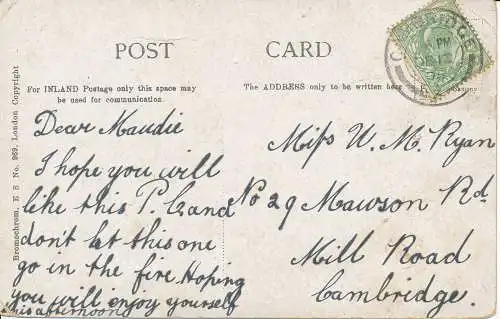 POST CARD
For INLAND Postage only this space may
be used for communication.
The ADDRESS only to be written here
CAMBRIDGE
PM
Bromochrom, E S No. 969, London Copyright
Dear Maudie
I hope you will
like this P. C and
don't let this one
go in the fire Hoping
you will enjoy yourself
this afternoon
Miss U. M. Ryan
No 29 Mawson Rd
Mill Road
Cambridge.